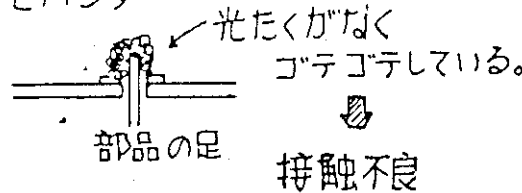 光たくがなく
ゴテゴテしている。
部品の足
接触不良